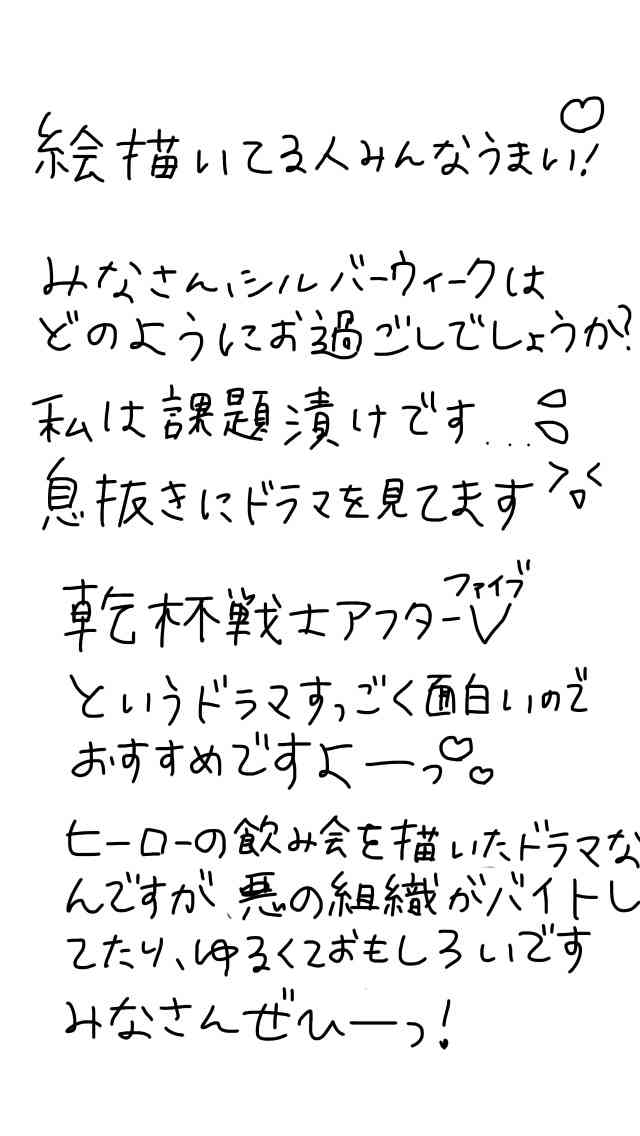 絵描いてる人みんなうまい!♡
みなさん、シルバーウィークは
どのようにお過ごしでしょうか?
私は課題漬けです...
息抜きにドラマを見てます
乾杯戦士アフターV ファイブ
というドラマすっごく面白いので
おすすめですよーっ♡♡
ヒーローの飲み会を描いたドラマな
んですが、悪の組織がバイトし
てたり、ゆるくておもしろいです
みなさんぜひーっ!